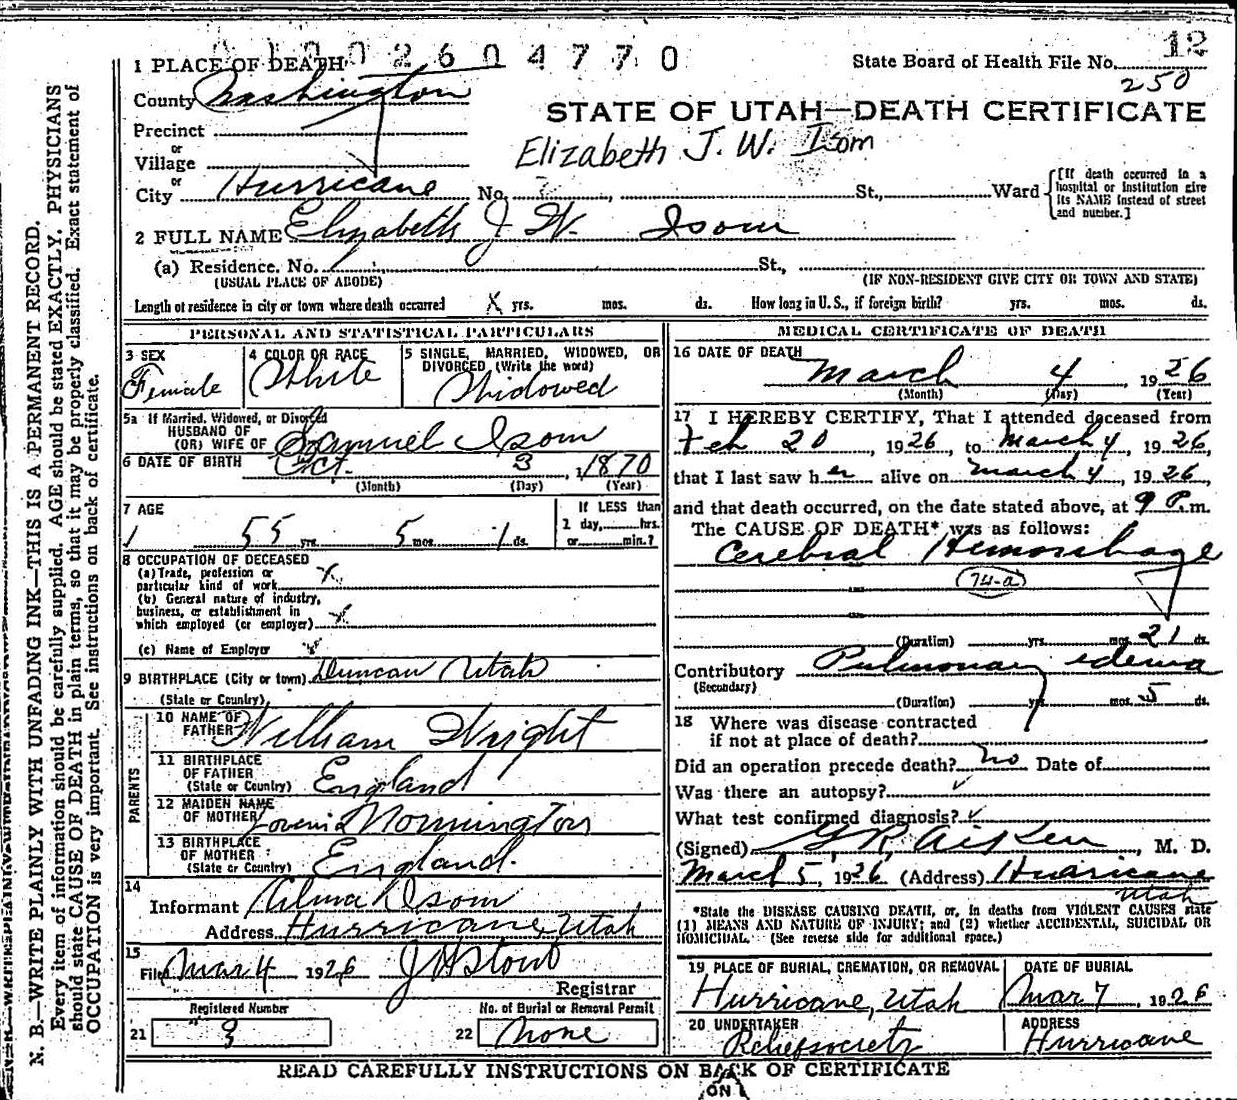 1 PLACE OF DEATH 0 1 0 0 2 6 0 4 7 7 0
State Board of Health File No. 12
250
County Washington
STATE OF UTAH—DEATH CERTIFICATE
Precinct
or
Village
Elizabeth J. W. Isom
or
City Hurricane No. St., Ward [If death occurred in a hospital or institution give its NAME instead of street and number.]
2 FULL NAME Elizabeth J W. Isom
(a) Residence. No. St.,
(USUAL PLACE OF ABODE) (IF NON-RESIDENT GIVE CITY OR TOWN AND STATE)
Length of residence in city or town where death occurred X yrs. mos. ds. How long in U. S., if foreign birth? yrs. mos. ds.
PERSONAL AND STATISTICAL PARTICULARS
3 SEX
Female
4 COLOR OR RACE
White
5 SINGLE, MARRIED, WIDOWED, OR
DIVORCED (Write the word)
Widowed
5a If Married, Widowed, or Divorced
HUSBAND OF
(OR) WIFE OF Samuel Isom
6 DATE OF BIRTH Oct. 3, 1870
(Month) (Day) (Year)
7 AGE
55 yrs. 5 mos. 1 ds.
If LESS than
1 day, hrs.
or min.?
8 OCCUPATION OF DECEASED
(a) Trade, profession or
particular kind of work X
(b) General nature of industry,
business, or establishment in
which employed (or employer) X
(c) Name of Employer
9 BIRTHPLACE (City or town) Duncan Utah
(State or Country)
PARENTS
10 NAME OF
FATHER William Wright
11 BIRTHPLACE
OF FATHER
(State or Country) England
12 MAIDEN NAME
OF MOTHER Lovenia Nonnington
13 BIRTHPLACE
OF MOTHER
(State or Country) England.
14
Informant Alma Isom
Address Hurricane, Utah
15
Filed Mar 4 1926 J H Stout
Registrar
Registered Number
21 3
No. of Burial or Removal Permit
22 None
MEDICAL CERTIFICATE OF DEATH
16 DATE OF DEATH
March 4, 1926
(Month) (Day) (Year)
17 I HEREBY CERTIFY, That I attended deceased from
Feb 20, 1926 to March 4, 1926,
that I last saw her alive on March 4, 1926,
and that death occurred, on the date stated above, at 9 P.m.
The CAUSE OF DEATH* was as follows:
Cerebral Hemorrhage
74-a
(Duration) yrs. mos. 21 ds.
Contributory Pulmonary edema
(Secondary)
(Duration) yrs. mos. 5 ds.
18 Where was disease contracted
if not at place of death?
Did an operation precede death? no Date of
Was there an autopsy?
What test confirmed diagnosis?
(Signed) G R Aiken, M. D.
March 5, 1926 (Address) Hurricane
Utah
*State the DISEASE CAUSING DEATH, or, in deaths from VIOLENT CAUSES state
(1) MEANS AND NATURE OF INJURY; and (2) whether ACCIDENTAL, SUICIDAL OR
HOMICIDAL. (See reverse side for additional space.)
19 PLACE OF BURIAL, CREMATION, OR REMOVAL
Hurricane, Utah
DATE OF BURIAL
Mar 7, 1926
20 UNDERTAKER
Relief society
ADDRESS
Hurricane
READ CAREFULLY INSTRUCTIONS ON BACK OF CERTIFICATE
ON
N. B.—WRITE PLAINLY WITH UNFADING INK—THIS IS A PERMANENT RECORD.
Every item of information should be carefully supplied. AGE should be stated EXACTLY. PHYSICIANS
should state CAUSE OF DEATH in plain terms, so that it may be properly classified. Exact statement of
OCCUPATION is very important. See instructions on back of certificate.